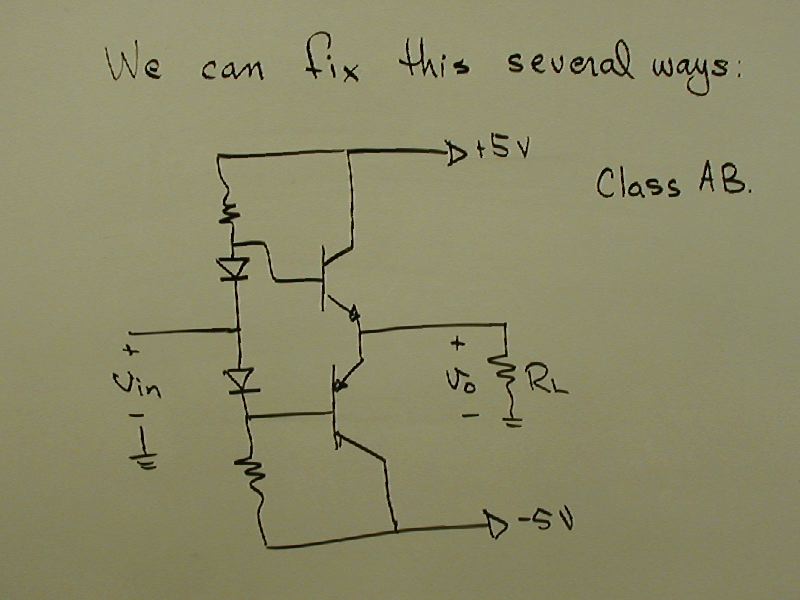 We can fix this several ways:
+5V
Class AB.
+
Vin
-
+
Vo
-
RL
-5V